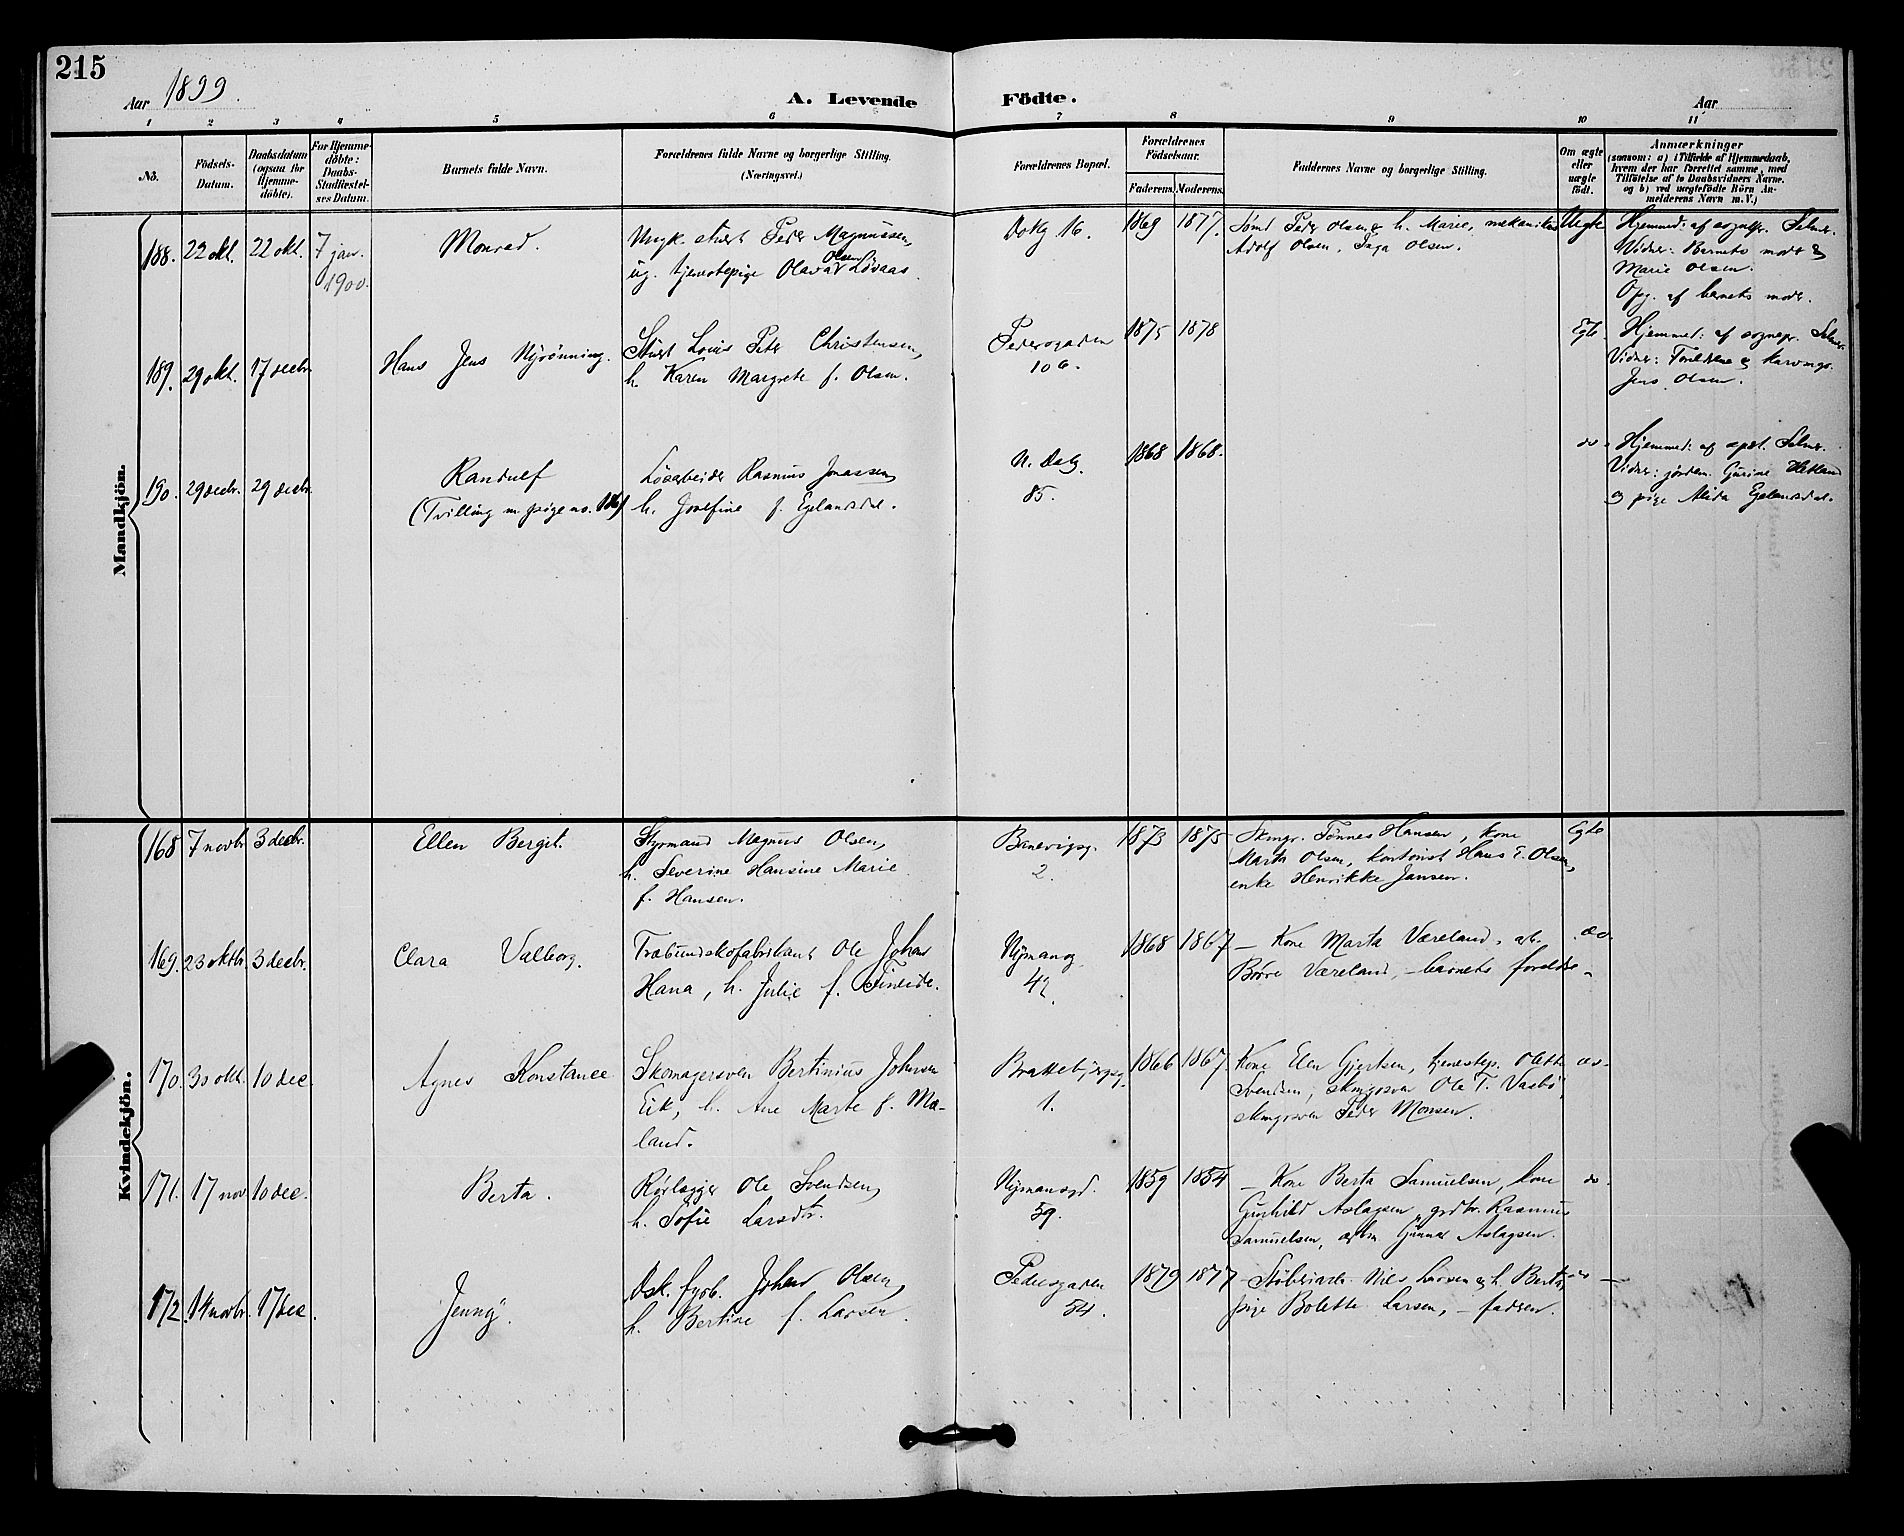 215
Aar 1899.
A. Levende Födte.
Aar
1 2 3 4 5 6 7 8 9 10 11
No.
Födsels-Datum.
Daabsdatum (ogsaa for Hjemme-döbte).
For Hjemme-döbte: Daabs-Stadfæstel-ses Datum.
Barnets fulde Navn.
Forældrenes fulde Navne og borgerlige Stilling.
(Næringsvei.)
Forældrenes Bopæl.
Forældrenes Födselsaar.
Faderens. Moderens.
Faddernes Navne og borgerlige Stilling.
Om ægte eller uægte födt.
Anmærkninger
(saasom: a) i Tilfælde af Hjemmedaab,
hvem der har forrettet samme, med
Tilföielse af to Daabsvidners Navne,
og b) ved uægtefödte Börn An-
melderens Navn m. V.)
Mandkjön.
188. 22 okt. 22 okt. 7 jan. 1900.
Monrad.
Ungk. stuert Peder Magnussen,
ug. tjenestepige Olava Olsen Løvaas.
Dokg 16.
1869 1877.
Sømd Peder Olsen & h. Marie, mekanikus
Adolf Olsen, Inga Olsen.
Uegte
Hjemmed: af sognepr. Selmer.
Vidner: Barnets moder &
Marie Olsen.
Opg. af barnets moder.
189. 29 okt. 17 decbr.
Hans Jens Nyrönning.
Stuert Louis Peter Christensen,
h. Karen Margrete f. Olsen.
Pedersgaden
106.
1875 1878
Egte
Hjemmed: af sognepr. Selmer.
Vidner: Foreldrene &
Jens Olsen.
190. 29 decbr. 29 decbr.
Randulf
(Tvilling m. pige no. 186)
Løsarbeider Rasmus Jonassen,
h. Josefine f. Egelandsdal.
N. Dalg.
85.
1868 1868.
do.
Hjemmed: af Selmer.
Vidner: jordem. Gurine Hetland
og pige Alida Egelandsdal.
Kvindekjön.
168 7 novbr 3 decbr.
Ellen Bergit.
Styrmand Magnus Olsen,
h. Severine Hansine Marie
f. Hansen.
Banevigsg.
2.
1873 1875
Skmgr. Tønnes Hansen, kone
Marta Olsen, kontorist Hans T. Olsen,
enke Henrikke Jansen.
Egte
169. 23 oktbr. 3 decbr.
Clara Valborg.
Træbundskofabrikant Ole Johan
Hana, h. Julie f. Tineide.
Nymansg
42.
1868 1867
– Kone Marta Væreland, arb.
Børre Væreland, – barnets foreldre.
do.
170. 30 okt. 10 dec.
Agnes Konstance
Skomagersven Bertinius Johnsen
Eik, h. Ane Marte f. Mæ-
land.
Brattebjergsg.
1.
1866 1867.
Kone Elen Gjertsen, tjenestep. Olette
Svendsen, skmgrsven Ole T. Vasbø,
skmgrsven Peder Monsen.
do.
171. 17 nov 10 dec.
Berta.
Rørlægger Ole Svendsen,
h. Sofie Larsdtr.
Nymansgd.
59.
1859 1854
– Kone Berta Samuelsen, kone
Gunhild Aslagsen, grdbr. Rasmus
Samuelsen, arbm Gunnar Aslagsen.
do.
172. 14 novbr. 17 dec.
Jenny.
Dsk. fyrb. Johan Olsen,
h. Bertine f. Larsen.
Pedersgaden
54.
1879 1877
– Støberiarb. Nils Larsen & h. Berta,
pige Bolette Larsen, – faderen.
do –